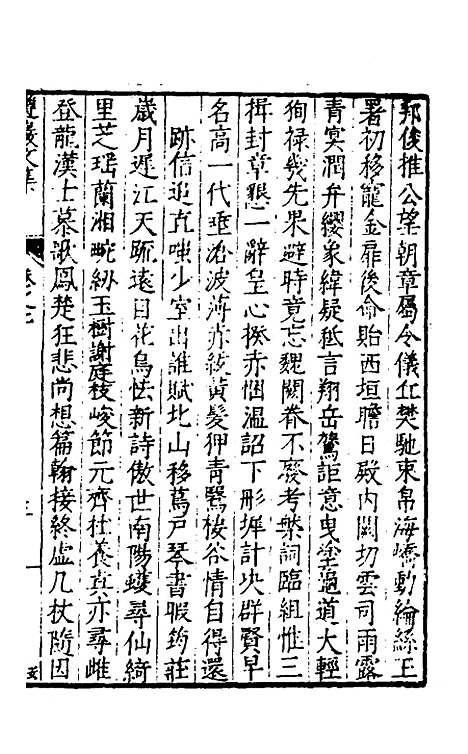 邦俊推公望朝章屬令儀丘樊馳束帛海嶠動綸絲王
署初移寵金扉後命貽西垣瞻日殿內闕切雲司雨露
青冥潤弁纓象緯疑秪言翔岳鷟詎意曳塗過道大輕
狥祿幾先果避時竟忘魏闕眷不廢考槃詞臨組惟三
揖封章懇一辭皇心揆赤悃溫詔下形墀計決群賢早
名高一代垂滄波海赤紱黃髮狎青鷖棲谷情自得還
跡信迤直嗤少室出誰賦北山移蔦戶琴書暇筠莊
歲月遲江天疏遠目花鳥怯新詩傲世南陽蠖尋仙綺
里芝瑤蘭湘畹紉玉樹謝庭枝峻節元齊杜養真亦尋雌
登龍漢士慕歌鳳楚狂悲尚想篇翰接終虛几杖隨因
文集
卷之七
三